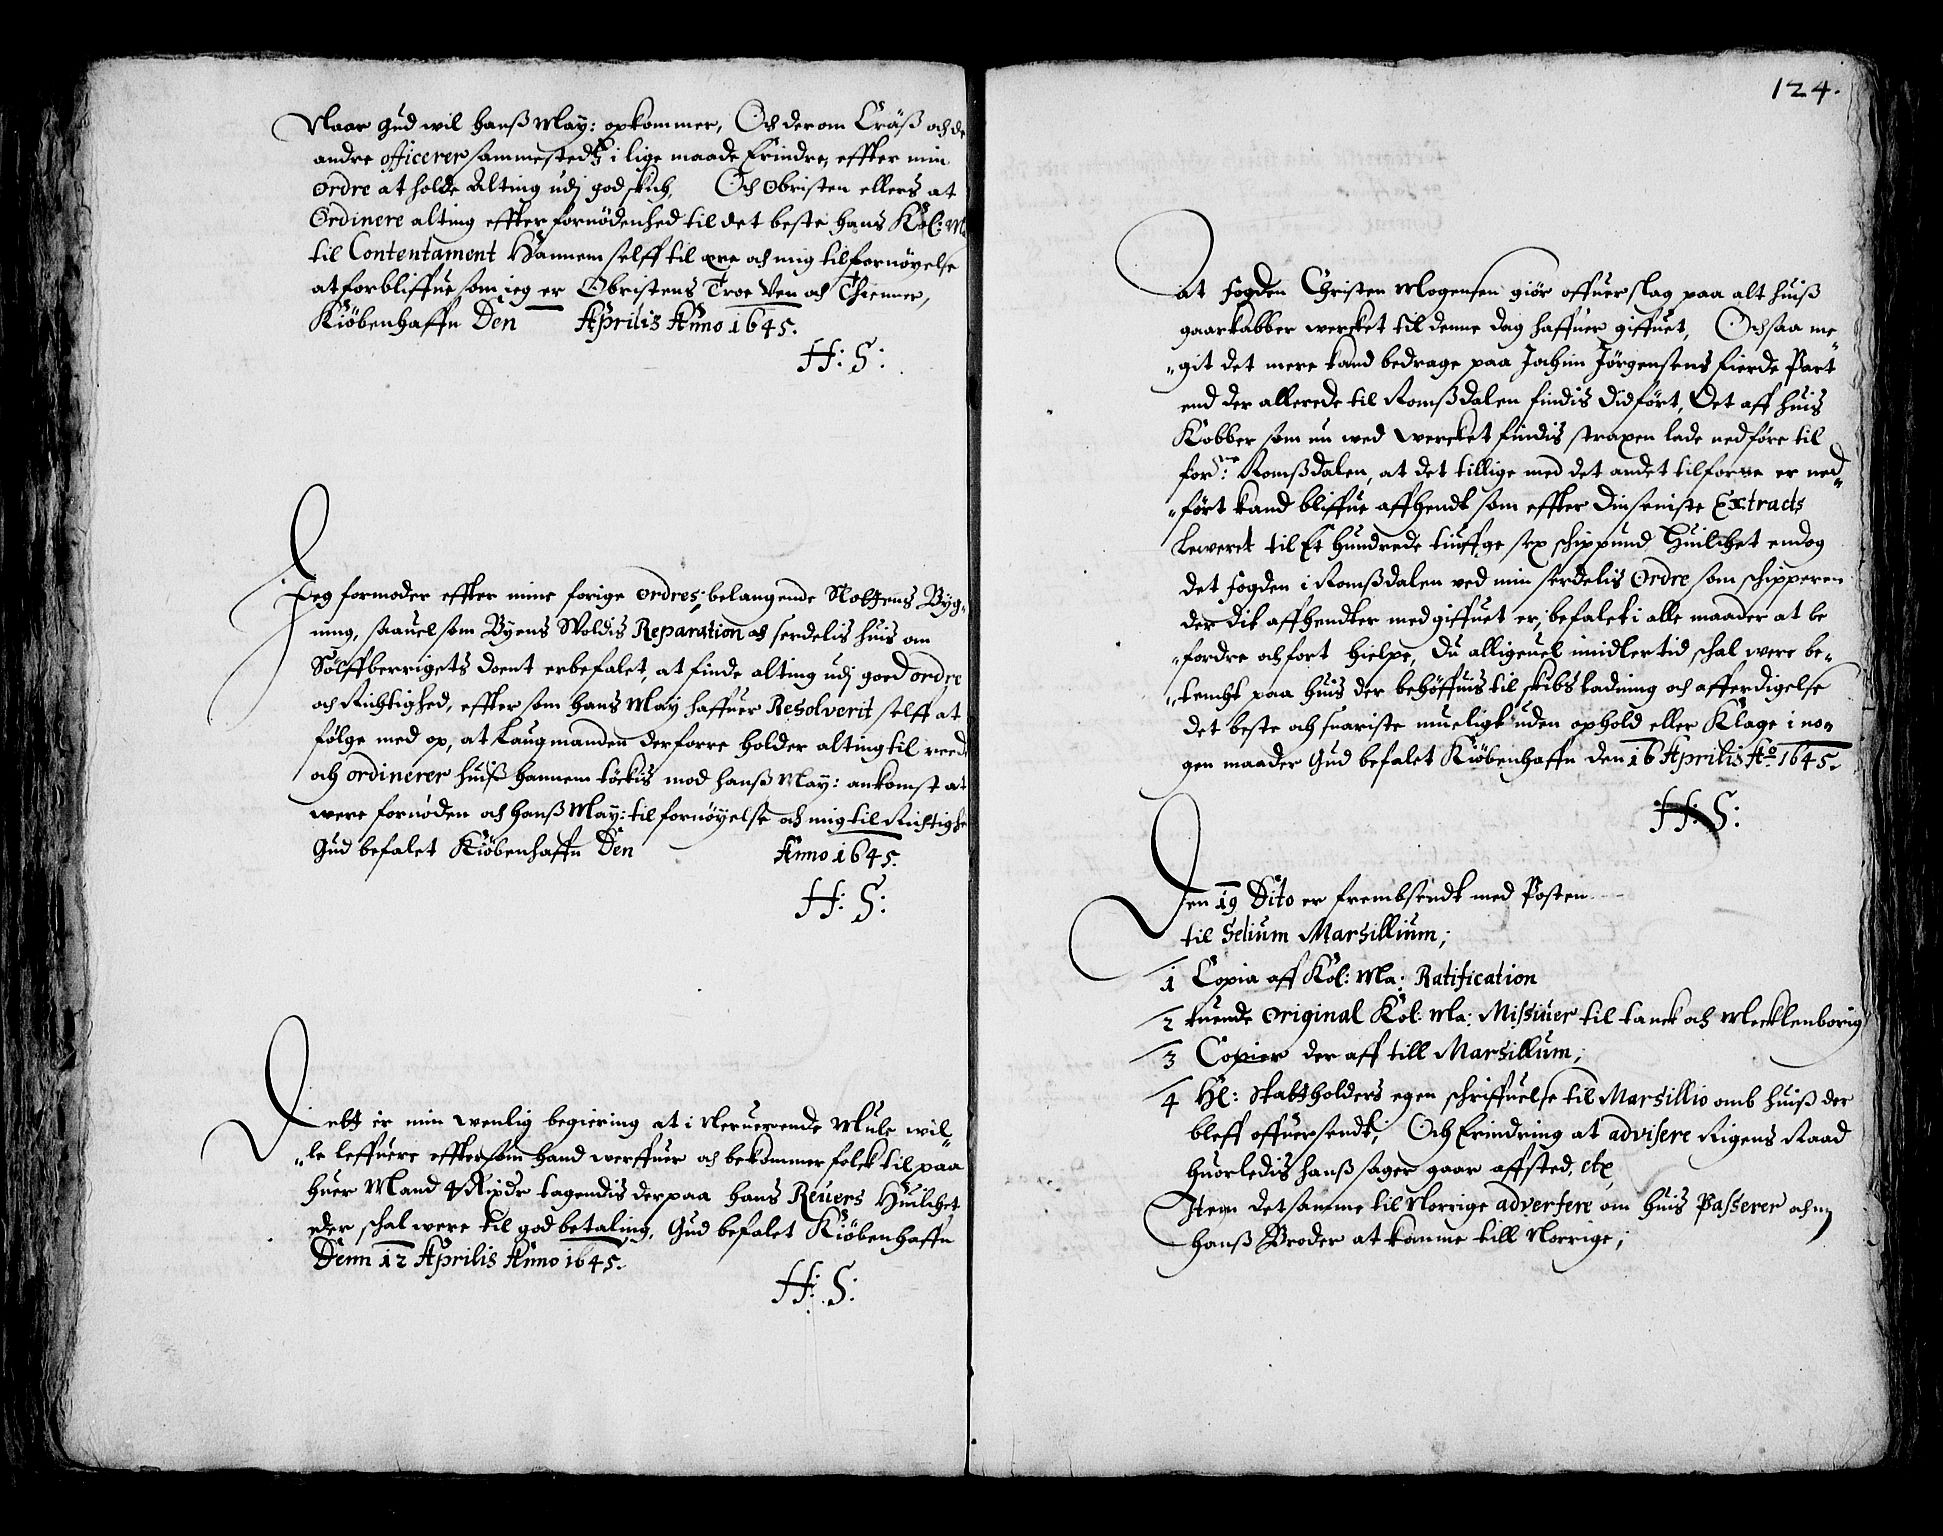 Naar Gud wil Hanß May: opkommer, Och derom Cräß och de
andre officerer sammestedtz i lige maade Erindre, effter min
Ordre at holde Alting udj god skich, Och Obristen ellers at
Ordinere alting effter fornödenhed til det beste hans Kol: M
til Contentament Hannem selff til ære och mig til fornöyelse
at forbliffue som ieg er Obristens Troe Ven och Thienner,
Kiöbenhaffn Den Aprilis Anno 1645.
H: S:
Jeg formoder effter mine forige Ordres, belangende Slottens Byg,
ning, saauel som Byens Woldis Reparation och serdelis huis om
Sölffberrigets doent er befalet, at finde alting udj goed ordre
och Richtighed, effter som hans May haffuer Resolverit selff at
fölge med op, at Laugmanden derforre holder alting til reede
och ordinerer huiß hannem töckis mod hanß May: ankomst at
were fornöden och hanß May: til fornöyelse och mig til Richtighe
Gud befalet Kiöbenhaffn Den Anno 1645.
H: S:
Dette er min wenlig begiering at i Neruerende Mule wil„
„le leffuere effter som hand werffuer och bekommer folck til paa
huer Mand 4 Rixdr tagendis der paa hans Reuers Huilchet
eder schal were til god betaling, Gud befalet Kiöbenhaffn
Denn 12 Aprilis Anno 1645.
H: S:
124.
At Fogden Christen Mogensen giör offuerslag paa alt huiß
gaarkabber wercket til denne dag haffuer giffuet, Och saa me„
„git det mere kand bedrage paa Jochim Jörgensens fierde Part
end der allerede til Romßdalen findis didfört, Det aff huis
Kobber som nu wed wercket findis straxen lade nedföre til
forne: Romßdalen, at det tillige med det andet tilforne er ned„
„fört kand bliffue affhendt som effter din seniste Extracts
Leweret til Et hundrede tiuffge sex schippund Huilchet endog
det Fogden i Romßdalen ved min serdelis Ordre som schipperen
der Dit affhendter med giffuet er, befalet i alle maader at be
„fordre och fort hielpe, Du alligeuel imidler tid schal were be„
„tencht paa huis der behöffuis til skibs ladning och afferdigelse
det beste och snariste mueligt uden ophold eller Klage i no„
gen maader Gud befalet Kiöbenhaffn den 16 Aprilis Ao. 1645.
H: S:
Den 19 Dito er frembsendt med Posten
til Selium Marsillium;
1 Copia aff Kol: Ma: Ratification
2 tuende Original Kol: Ma: Missiuer til tanck och Mecklenborig
3 Copier der aff till Marsillum;
4 Hl: Statholders egen schriffuelse til Marsillio omb huiß der
bleff offuersendt, Och Erindring at advisere Rigens Raad
huorledis hanß sager gaar affsted, etc
Item det samme til Norrige advertere om huis Passerer och
hanß Broder at komme till Norrige;